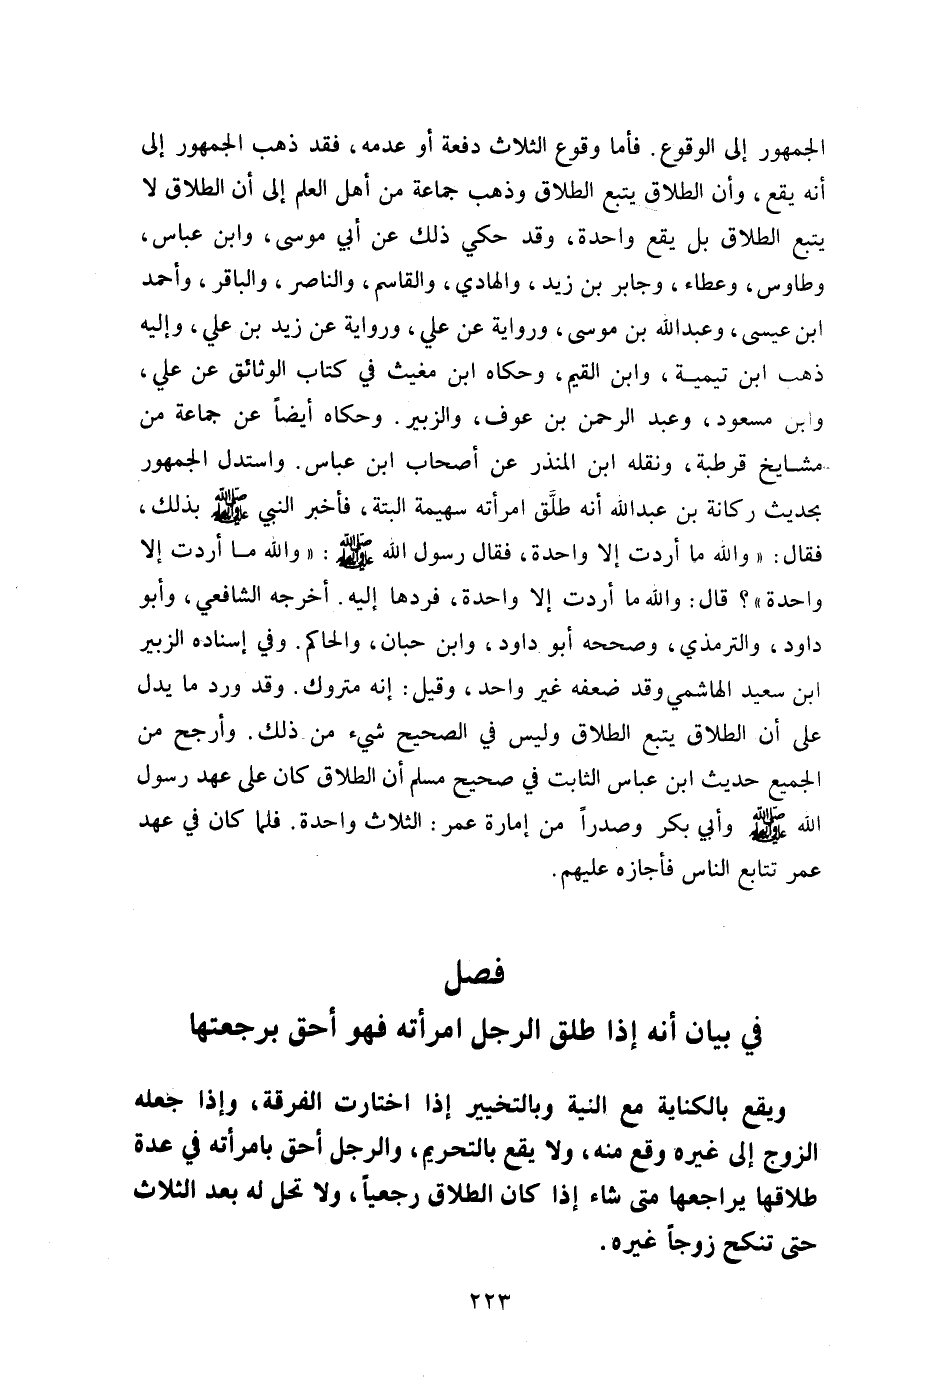 الجمهور إلى الوقوع. فأما وقوع الثلاث دفعة أو عدمه، فقد ذهب الجمهور إلى
أنه يقع، وأن الطلاق يتبع الطلاق وذهب جماعة من أهل العلم إلى أن الطلاق لا
يتبع الطلاق بل يقع واحدة، وقد حكي ذلك عن أبي موسى، وابن عباس،
وطاوس، وعطاء، وجابر بن زيد، والهادي، والقاسم، والناصر، والباقر، وأحمد
ابن عيسى، وعبدالله بن موسى، ورواية عن علي، ورواية عن زيد بن علي، وإليه
ذهب ابن تيمية، وابن القيم، وحكاه ابن مغيث في كتاب الوثائق عن علي،
وابن مسعود، وعبد الرحمن بن عوف، والزبير. وحكاه أيضاً عن جماعة من
مشايخ قرطبة، ونقله ابن المنذر عن أصحاب ابن عباس. واستدل الجمهور
بحديث ركانة بن عبدالله أنه طلَّق امرأته سهيمة البتة، فأخبر النبي ﷺ بذلك،
فقال: «والله ما أردت إلا واحدة، فقال رسول الله ﷺ: «والله ما أردت إلا
واحدة»؟ قال: والله ما أردت إلا واحدة، فردها إليه. أخرجه الشافعي، وأبو
داود، والترمذي، وصححه أبو داود، وابن حبان، والحاكم. وفي إسناده الزبير
ابن سعيد الهاشمي وقد ضعفه غير واحد، وقيل: إنه متروك. وقد ورد ما يدل
على أن الطلاق يتبع الطلاق وليس في الصحيح شيء من ذلك. وأرجح من
الجميع حديث ابن عباس الثابت في صحيح مسلم أن الطلاق كان على عهد رسول
الله ﷺ وأبي بكر وصدراً من إمارة عمر: الثلاث واحدة. فلما كان في عهد
عمر تتابع الناس فأجازه عليهم.
فصل
في بيان أنه إذا طلق الرجل امرأته فهو أحق برجعتها
ويقع بالكناية مع النية وبالتخيير إذا اختارت الفرقة، وإذا جعله
الزوج إلى غيره وقع منه، ولا يقع بالتحريم، والرجل أحق بامرأته في عدة
طلاقها يراجعها متى شاء إذا كان الطلاق رجعياً، ولا تحل له بعد الثلاث
حتى تنكح زوجاً غيره.
٢٢٣